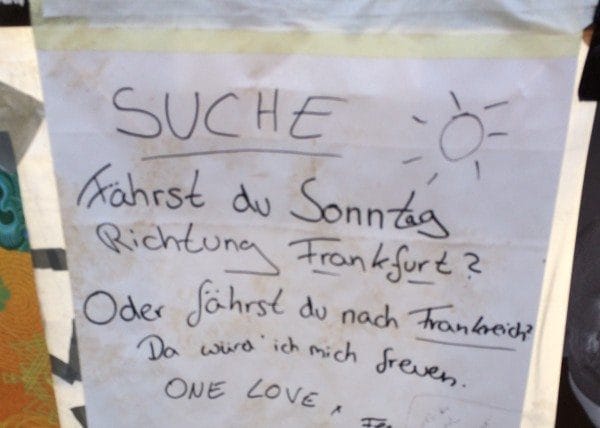 SUCHE
Fährst du Sonntag
Richtung Frankfurt?
Oder fährst du nach Frankreich?
Da würd' ich mich freuen.
ONE LOVE,